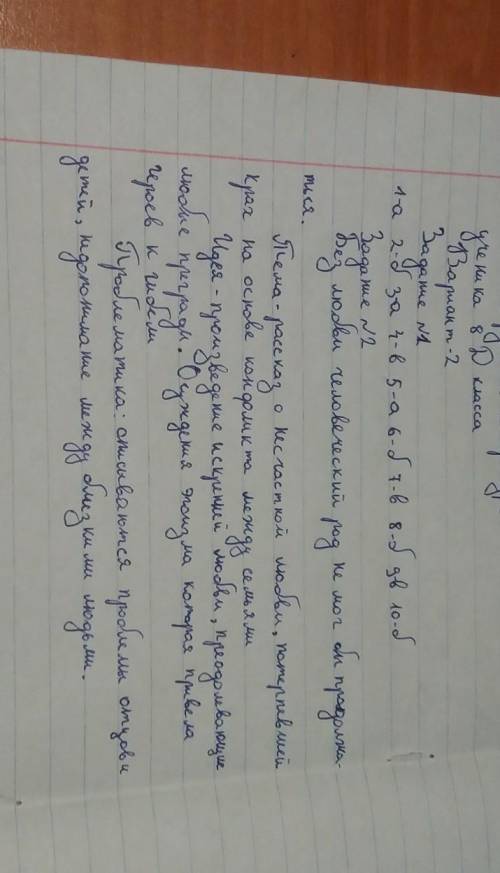 ученика 8 Д класса
Вариант-2
Задание №1
1-а 2-б 3а 4-в 5-а 6-б 7-в 8-б 9в 10-б
Задание №2
Без любви человеческий род не мог бы продолжа-
ться.
Тема-рассказ о несчастной любви, потерпевшей
крах на основе конфликта между семьями
Идея-произведение искренней любви, преодолевающие
любые преграды. Осуждения эгоизма которая привела
героев к гибели
Проблематика: описываются проблемы отцов и
детей, недопонимание между близкими людьми.